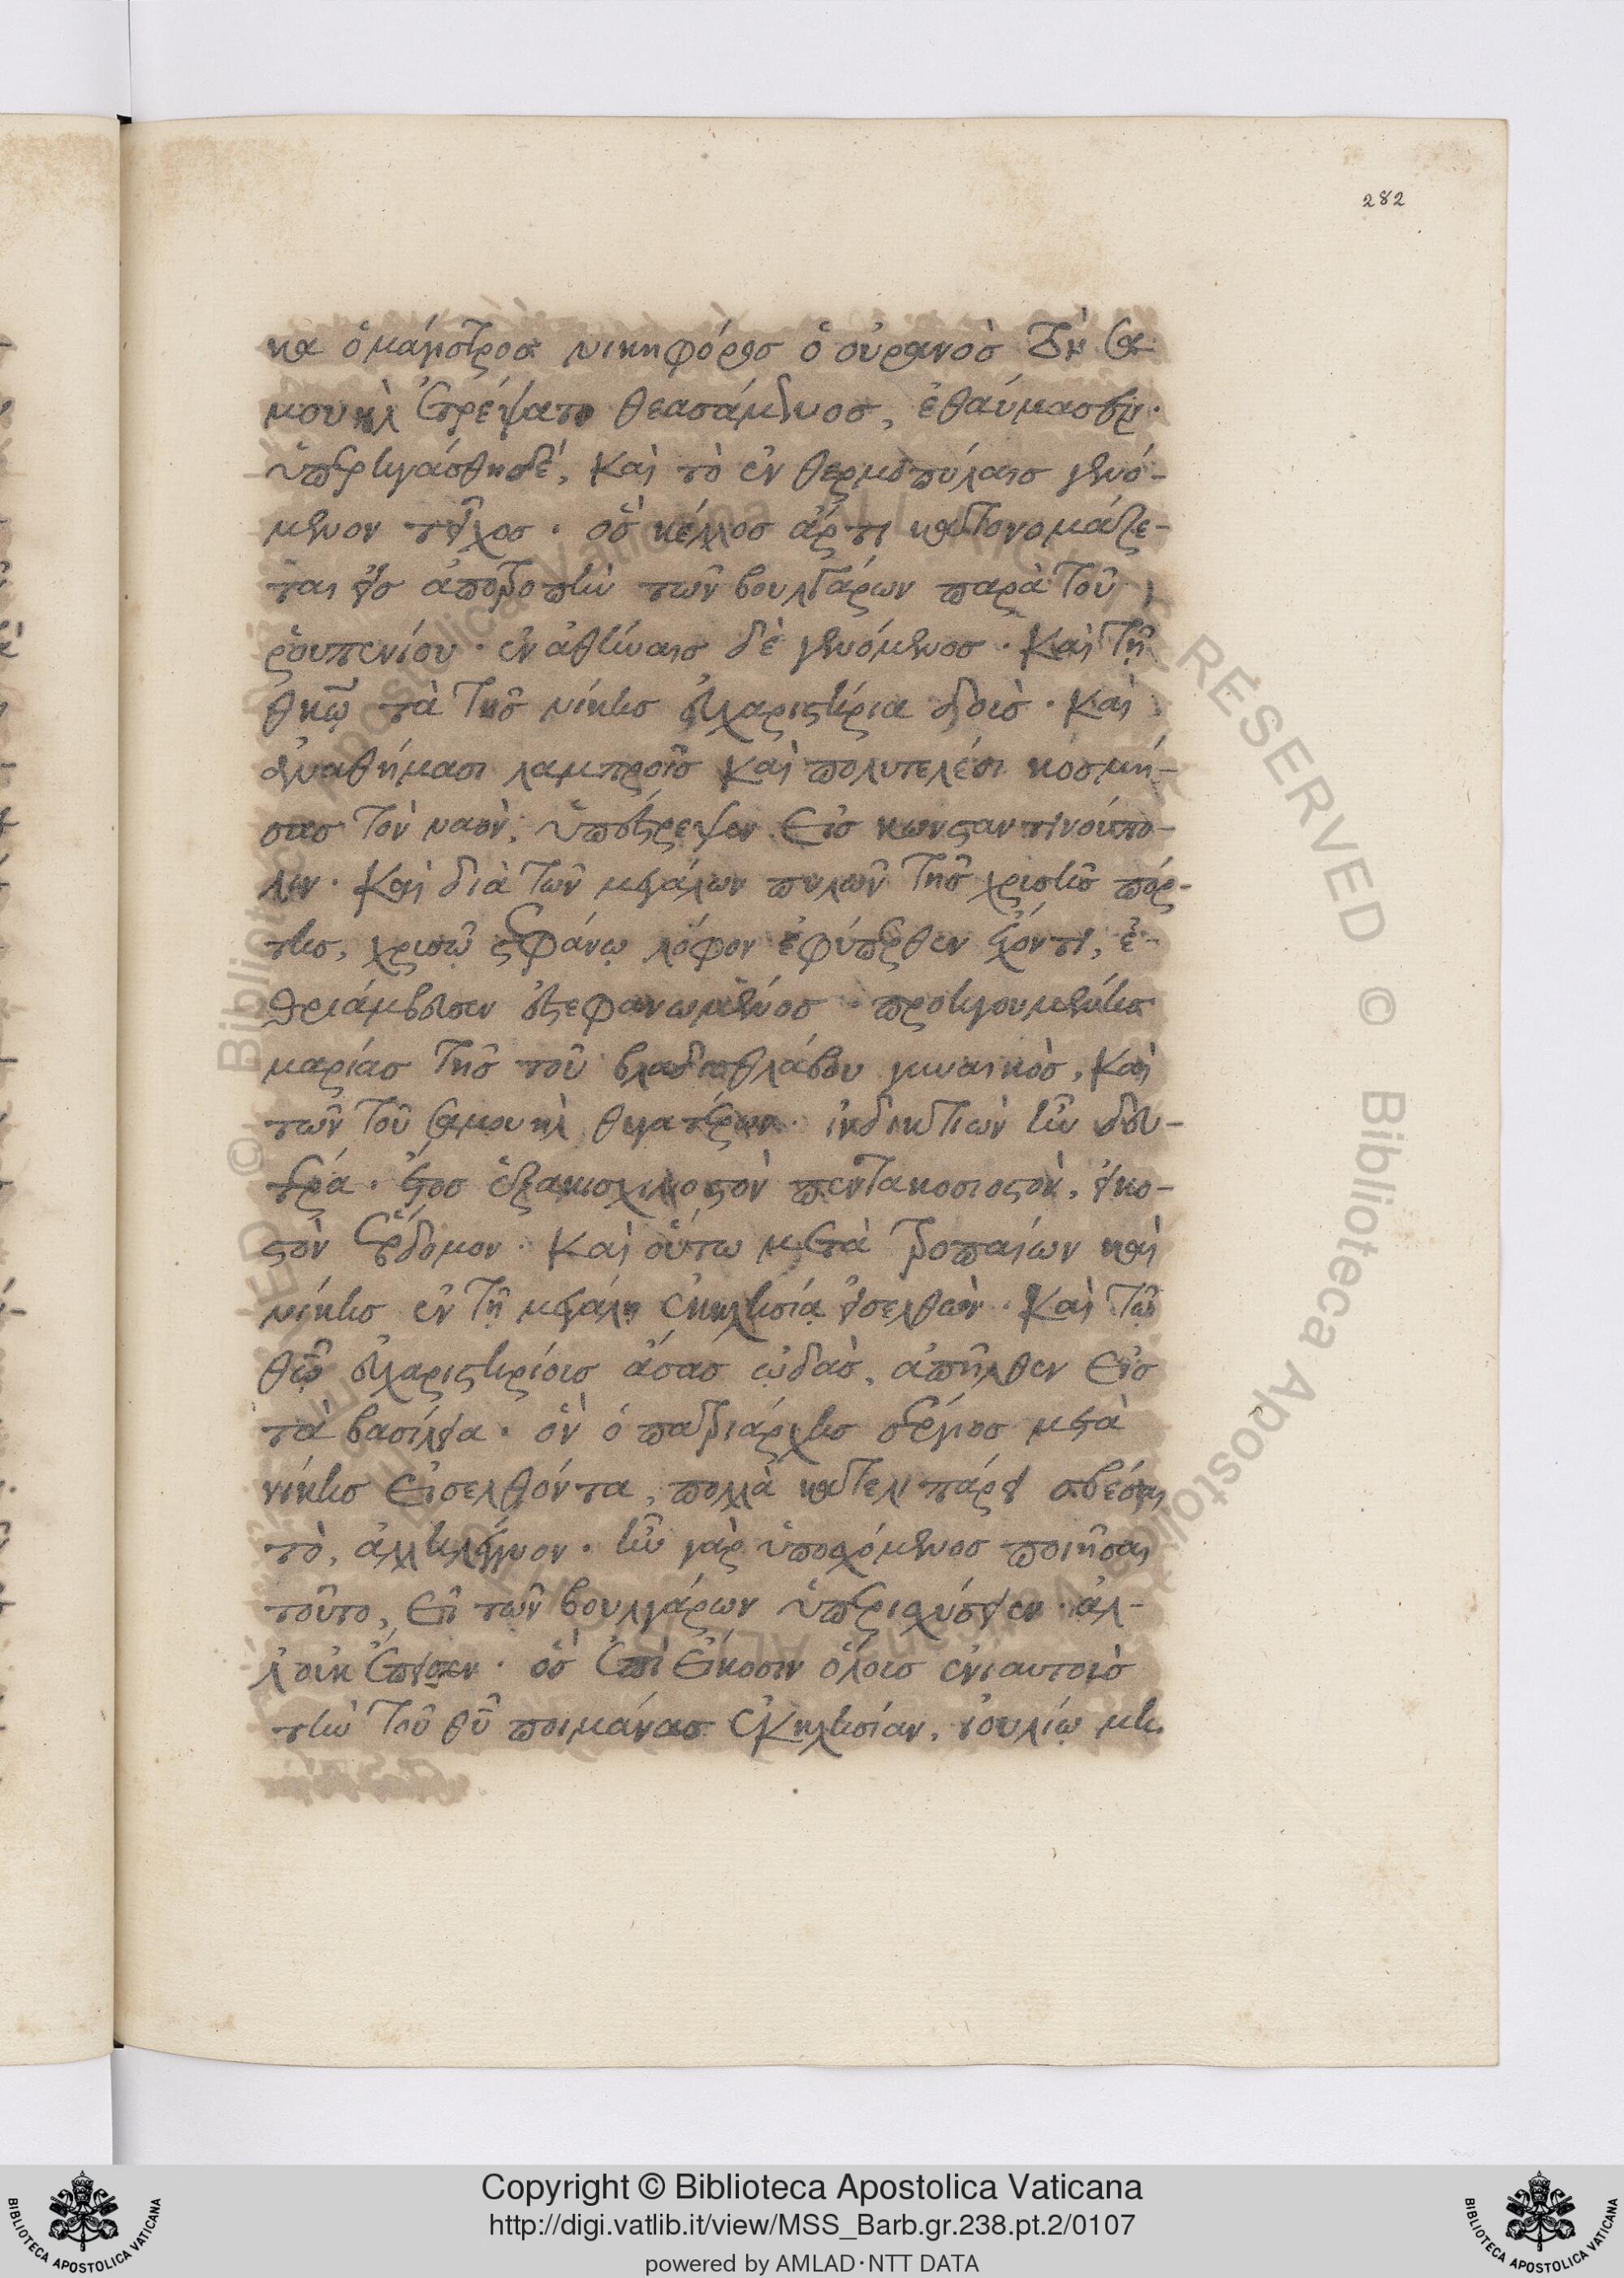 282
κα ὁ μάγιστρος νικηφόρος ὁ οὐρανὸς τὸν σα
μουὴλ ἐτρέψατο θεασάμενος, ἐθαύμασεν·
ὑπερηγάσθη δέ, καὶ τὸ ἐν θερμοπύλαις γενό-
μενον τεῖχος · ὃ σκέλος ἄρτι κατονομάζε-
ται εἰς ἀποτροπὴν τῶν βουλγάρων παρὰ τοῦ
ῥουπενίου · ἐν ἀθήναις δὲ γενόμενος · καὶ τῇ
θκῶ τὰ τῆς νίκης εὐχαριστήρια δοὺς · καὶ
ἀναθήμασι λαμπροῖς καὶ πολυτελέσι κοσμή-
σας τὸν ναὸν, ὑπέστρεψεν εἰς κωνσταντινούπο-
λιν · καὶ διὰ τῶν μεγάλων πυλῶν τῆς χρυσῆς πόρ-
της, χρυσῷ στεφάνῳ λόφον ἐφύπερθεν ἔχοντι, ἐ-
θριάμβευσεν ἐστεφανωμένος · προηγουμένης
μαρίας τῆς τοῦ βλαδισθλάβου γυναικὸς, καὶ
τῶν τοῦ σαμουὴλ θυγατέρων · ἰνδικτιὼν ἦν δευ-
τέρα · ἔτος ἑξακισχιλιοστὸν πεντακοσιοστὸν, εἰκο-
στὸν ἕβδομον · καὶ οὕτω μετὰ τροπαίων καὶ
νίκης ἐν τῇ μεγάλῃ ἐκκλησίᾳ εἰσελθὼν · καὶ τῷ
θῶ εὐχαριστηρίοις ᾄσας ᾠδὰς, ἀπῆλθεν εἰς
τὰ βασίλεια · ὃν ὁ πατριάρχης σέργιος μετὰ
νίκης εἰσελθόντα, πολλὰ κατελιπάρει σβέσαι
τὸ, ἀλληλέγγυον · ἦν γὰρ ὑποσχόμενος ποιῆσαι
τοῦτο, εἰ τῶν βουλγάρων ὑπερισχύσειεν · ἀλ-
λ οὐκ ἔπεισεν · ὃς ἐπὶ εἴκοσιν ὅλοις ἐνιαυτοῖς
τὴν τοῦ θῦ ποιμάνας ἐκκλησίαν, ἰουλίῳ μη
Copyright © Biblioteca Apostolica Vaticana
http://digi.vatlib.it/view/MSS_Barb.gr.238.pt.2/0107
powered by AMLAD·NTT DATA
BIBLIOTECA APOSTOLICA VATICANA
BIBLIOTECA APOSTOLICA VATICANA